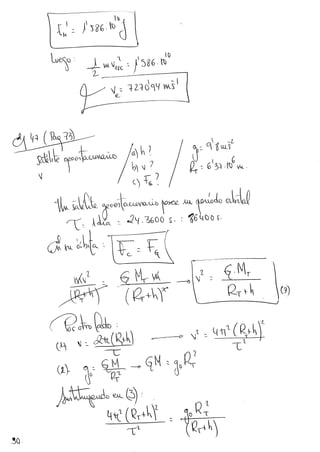 E'ₘ = 1'586·10¹⁰ J
luego: 1/2 m v²ₑₛc = 1'586·10¹⁰
vₑ = 7270'94 ms⁻¹
Ej 47 (Pag 73)
satélite geoestacionario / a) h? / g₀ = 9'8 ms⁻²
v / b) v? / R_T = 6'37·10⁶ m.
c) F_G?
Un satélite geoestacionario posee un periodo orbital
T: 1 día = 24·3600 s. = 86400 s.
En su órbita: F_c = F_G
mv²/(R_T+h) = G M_T m/(R_T+h)² → v² = G·M_T/(R_T+h) (3)
Por otro lado:
(1) v = 2π(R_T+h)/T → v² = 4π²(R_T+h)²/T²
(2) g₀ = GM/R_T² → GM = g₀R_T²
Sustituyendo en (3):
4π²(R_T+h)²/T² = g₀R_T²/(R_T+h)
30